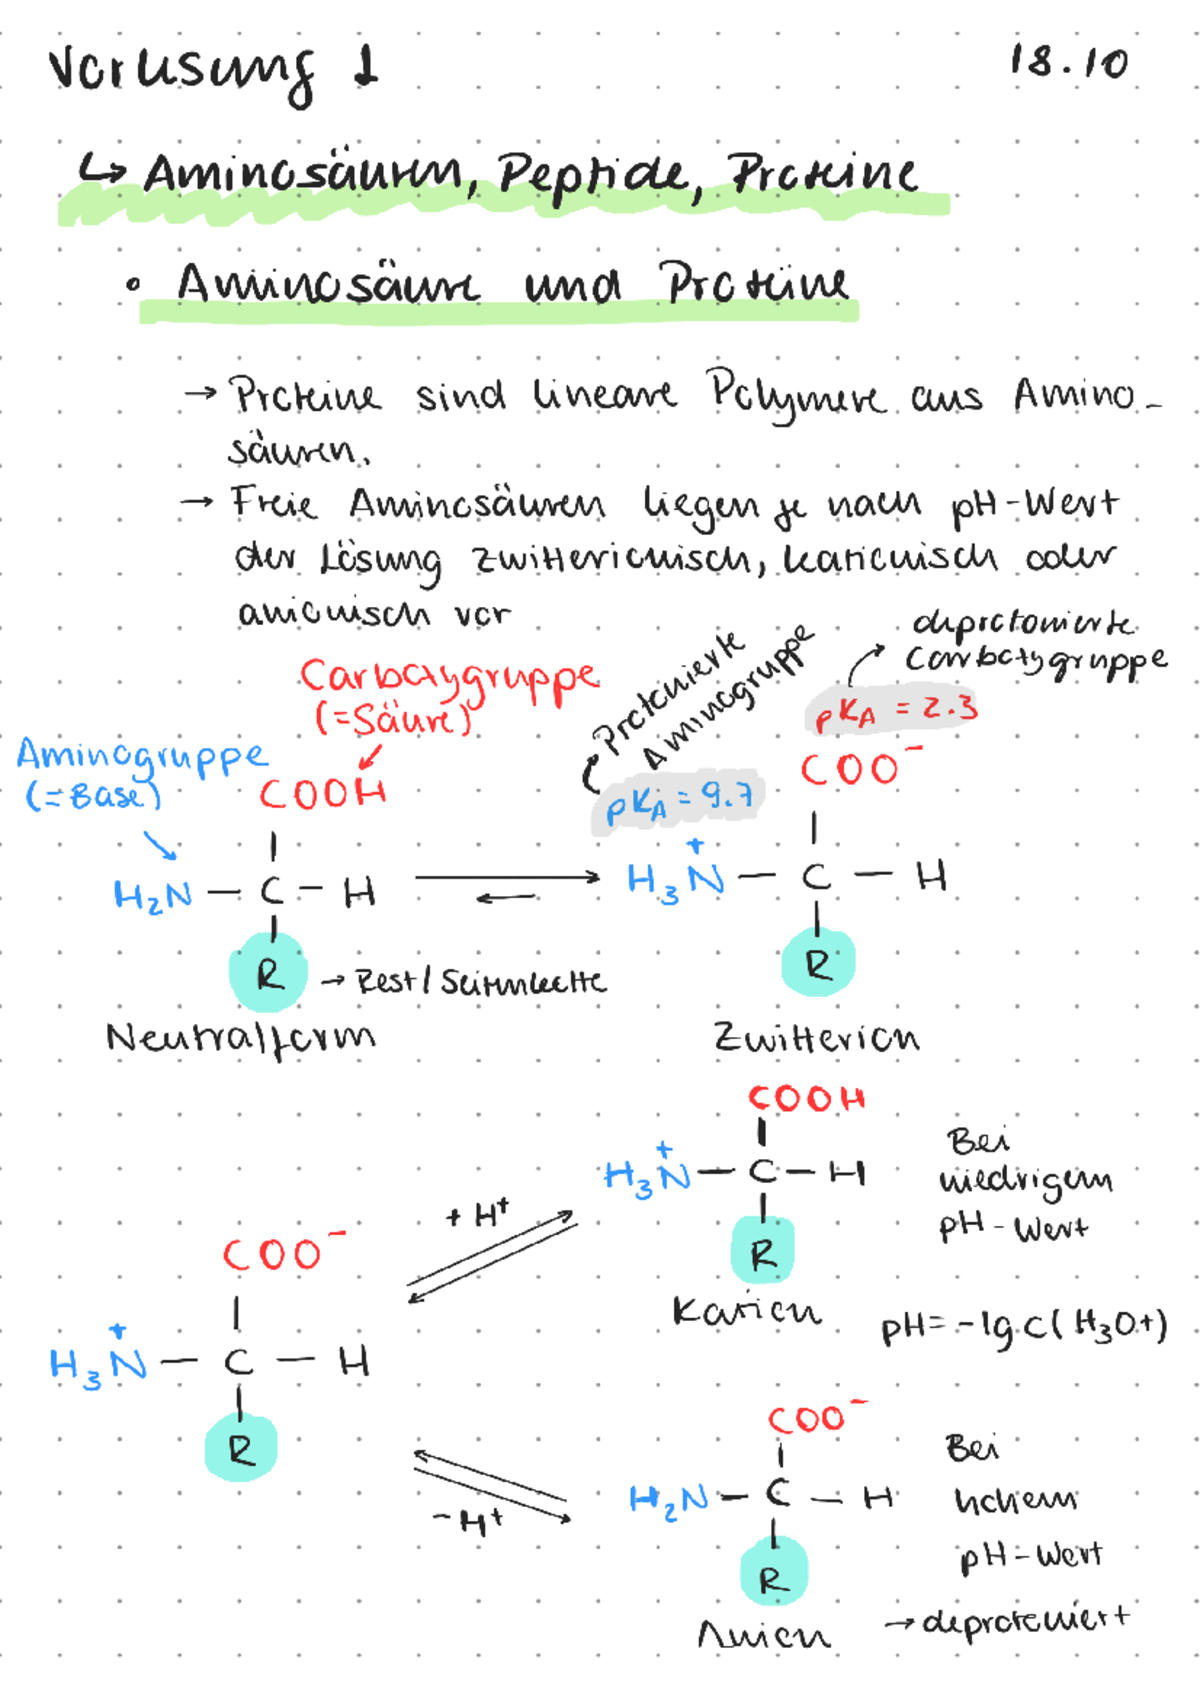 Vorlesung 1 18.10
↳ Aminosäuren, Peptide, Proteine
• Aminosäure und Proteine
→ Proteine sind lineare Polymere aus Amino-
säuren.
→ Freie Aminosäuren liegen je nach pH-Wert
der Lösung zwitterionisch, kationisch oder
anionisch vor
deprotonierte
Carboxygruppe
Protonierte
Aminogruppe
Carboxygruppe
(=Säure)
pKA = 2.3
Aminogruppe
(=Base)
pKA = 9.7
COOH
COO⁻
H₂N – C – H
H₃N⁺ – C – H
R → Rest / Seitenkette
R
Neutralform
Zwitterion
COOH
H₃N⁺ – C – H
R
Kation
Bei
niedrigem
pH-Wert
pH = -lg c(H₃O+)
+ H⁺
COO⁻
H₃N⁺ – C – H
R
- H⁺
COO⁻
H₂N – C – H
R
Anion
Bei
hohem
pH-Wert
→ deprotoniert